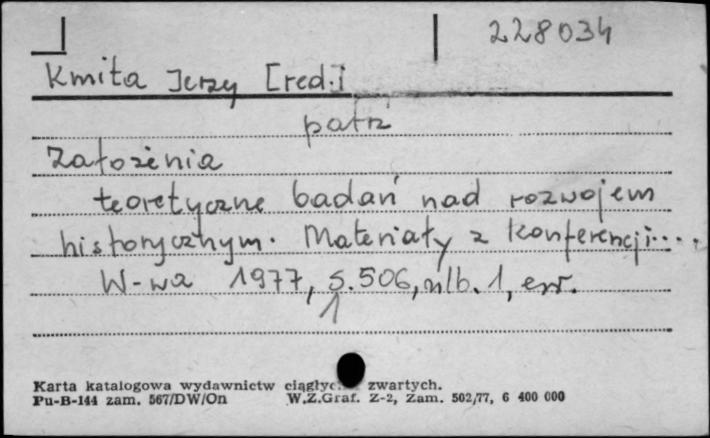 228034
Kmita Jerzy [red.]
patrz
Założenia
teoretyczne badań nad rozwojem
historycznym. Materiały z konferencji....
W-wa 1977, s. 506, nlb. 1, err.
1
Karta katalogowa wydawnictw ciągłyc zwartych.
Pu-B-144 zam. 567/DW/On W.Z.Graf. Z-2, Zam. 502/77, 6 400 000